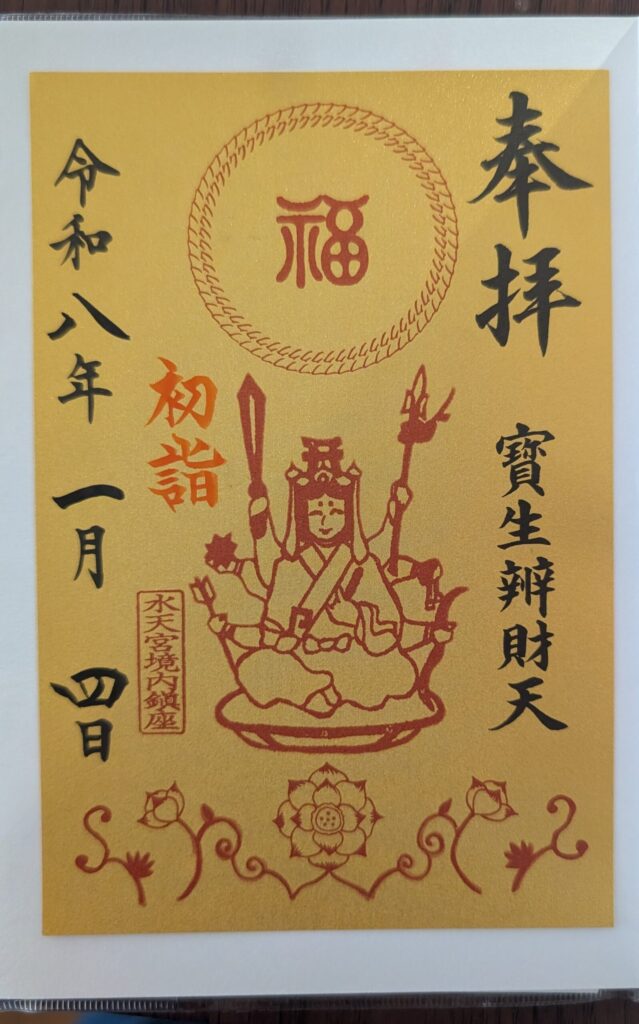 奉拝
寶生辨財天
福
初詣
水天宮境内鎮座
令和八年一月四日